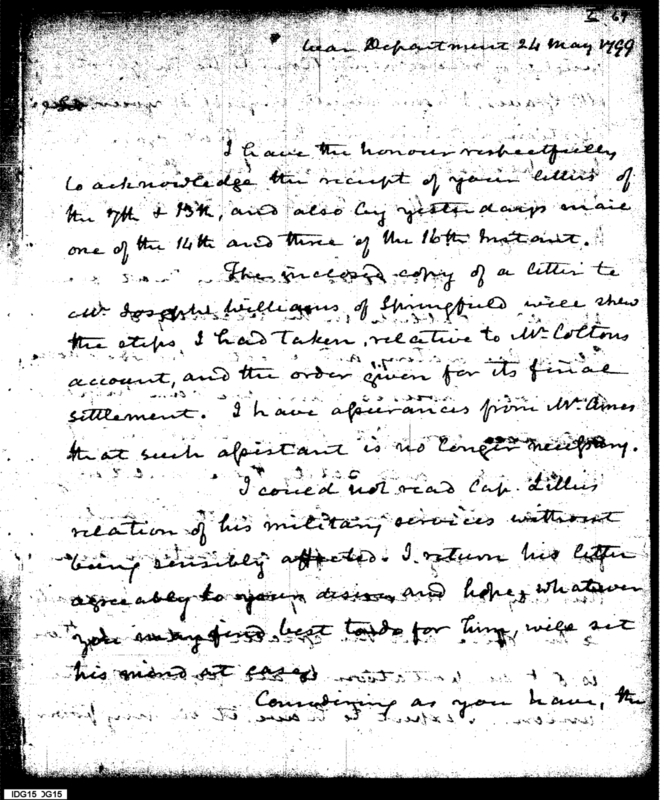 I 69
War Department 24 May 1799
Sir
I have the honour respectfully
to acknowledge the receipt of your letters of
the 7th & 13th, and also by yesterdays mail
one of the 14th and three of the 16th Instant.
The inclosed copy of a letter to
Mr Josephe Williams of Springfield will shew
the steps I had taken, relative to Mr Coltons
account, and the order given for its final
settlement. I have assurances from Mr. Ames
that such assistant is no longer necessary.
I could not read Cap. Lillies
relation of his military services without
being sensibly affected. I return his letter
agreeably to your desire, and hope, whatever
you may find best to do for him, will set
his mind at ease.
Considering as you have, the
IDG15 IDG15